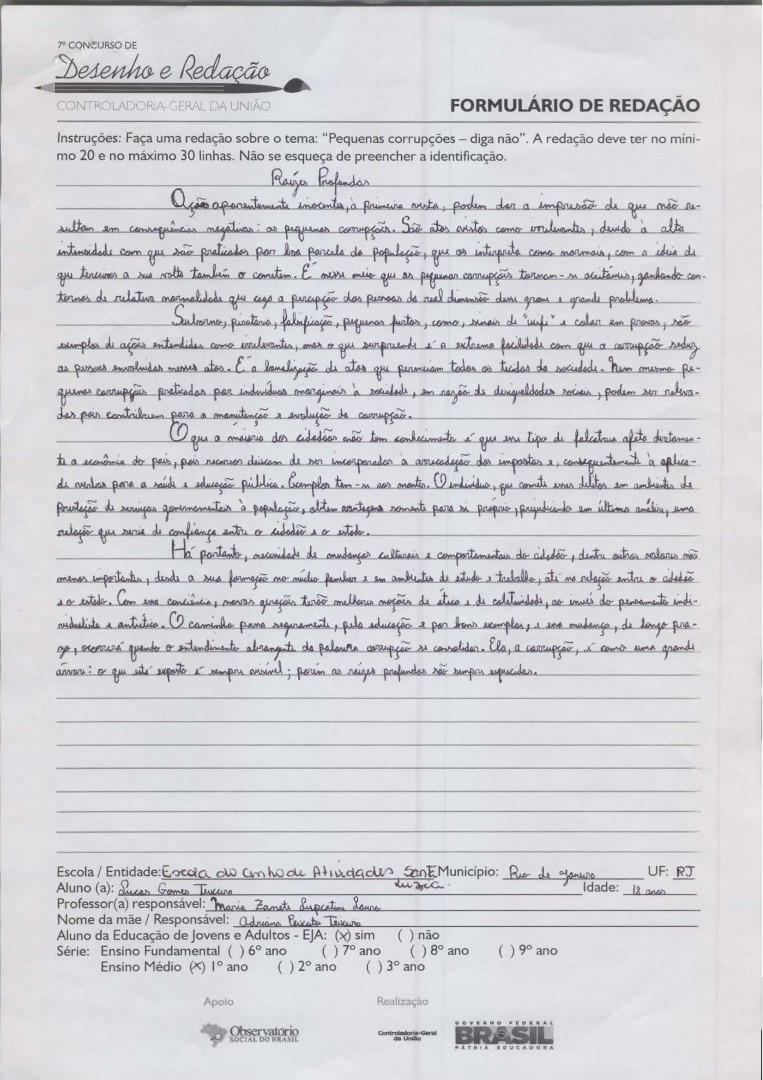 7º CONCURSO DE
Desenho e Redação
CONTROLADORIA-GERAL DA UNIÃO
FORMULÁRIO DE REDAÇÃO
Instruções: Faça uma redação sobre o tema: "Pequenas corrupções – diga não". A redação deve ter no míni-
mo 20 e no máximo 30 linhas. Não se esqueça de preencher a identificação.
Raízes Profundas
Ação aparentemente inocentes, à primeira vista, podem dar a impressão de que não re-
sultam em consequências negativas: as pequenas corrupções. São atos vistos como irrelevantes, devido à alta
intensidade com que são praticados por boa parcela da população, que os interpreta como normais, com a ideia de
que terceiros a sua volta também o cometem. É nesse meio que as pequenas corrupções tornam-se aceitáveis, ganhando con-
tornos de relativa normalidade que cega a percepção das pessoas da real dimensão desse grave e grande problema.
Suborno, pirataria, falsificação, pequenos furtos, como, sinais de "wifi" e colar em provas, são
exemplos de ações entendidas como irrelevantes, mas o que surpreende é a extrema facilidade com que a corrupção seduz
as pessoas envolvidas nesses atos. É a banalização de atos que permeiam todos os tecidos da sociedade. Nem mesmo pe-
quenas corrupções praticadas por indivíduos marginais à sociedade, em razão de desigualdades sociais, podem ser releva-
das pois contribuem para a manutenção e evolução da corrupção.
O que a maioria dos cidadãos não tem conhecimento é que esse tipo de falcatrua afeta diretamen-
te a economia do país, pois recursos deixam de ser incorporados à arrecadação dos impostos e, consequentemente à aplica-
de verbas para a saúde e educação pública. Exemplos tem-se aos montes. O indivíduo, que comete esses delitos em ambientes de
prestação de serviços governamentais à população, obtem vantagens somente para si próprio, prejudicando em última análise, uma
relação que seria de confiança entre o cidadão e o estado.
Há portanto, necessidade de mudanças culturais e comportamentais do cidadão, dentre outros valores não
menos importantes, desde a sua formação no núcleo familiar e em ambientes de estudo e trabalho, até na relação entre o cidadão
e o estado. Com essa conciência, novas gerações terão melhores noções de ética e de coletividade, ao invés do pensamento indi-
vidualista e antiético. O caminho passa seguramente, pela educação e por bons exemplos, e essa mudança, de longo pra-
zo, ocorrerá quando o entendimento abrangente da palavra corrupção se consolidar. Ela, a corrupção, é como uma grande
árvore: o que está exposto é sempre visível; porém as raízes profundas são sempre esquecidas.
Escola / Entidade: Escola do Cinho de Atividades Santa Luzia Município: Rio de Janeiro UF: RJ
Aluno (a): Lucas Gomes Teixeira Idade: 18 anos
Professor(a) responsável: Maria Zanete
Nome da mãe / Responsável: Adriana Peixoto Teixeira
Aluno da Educação de Jovens e Adultos - EJA: (x) sim ( ) não
Série: Ensino Fundamental ( ) 6º ano ( ) 7º ano ( ) 8º ano ( ) 9º ano
Ensino Médio (x) 1º ano ( ) 2º ano ( ) 3º ano
Apoio Realização
Observatório SOCIAL DO BRASIL
Controladoria-Geral da União
GOVERNO FEDERAL
BRASIL
PÁTRIA EDUCADORA